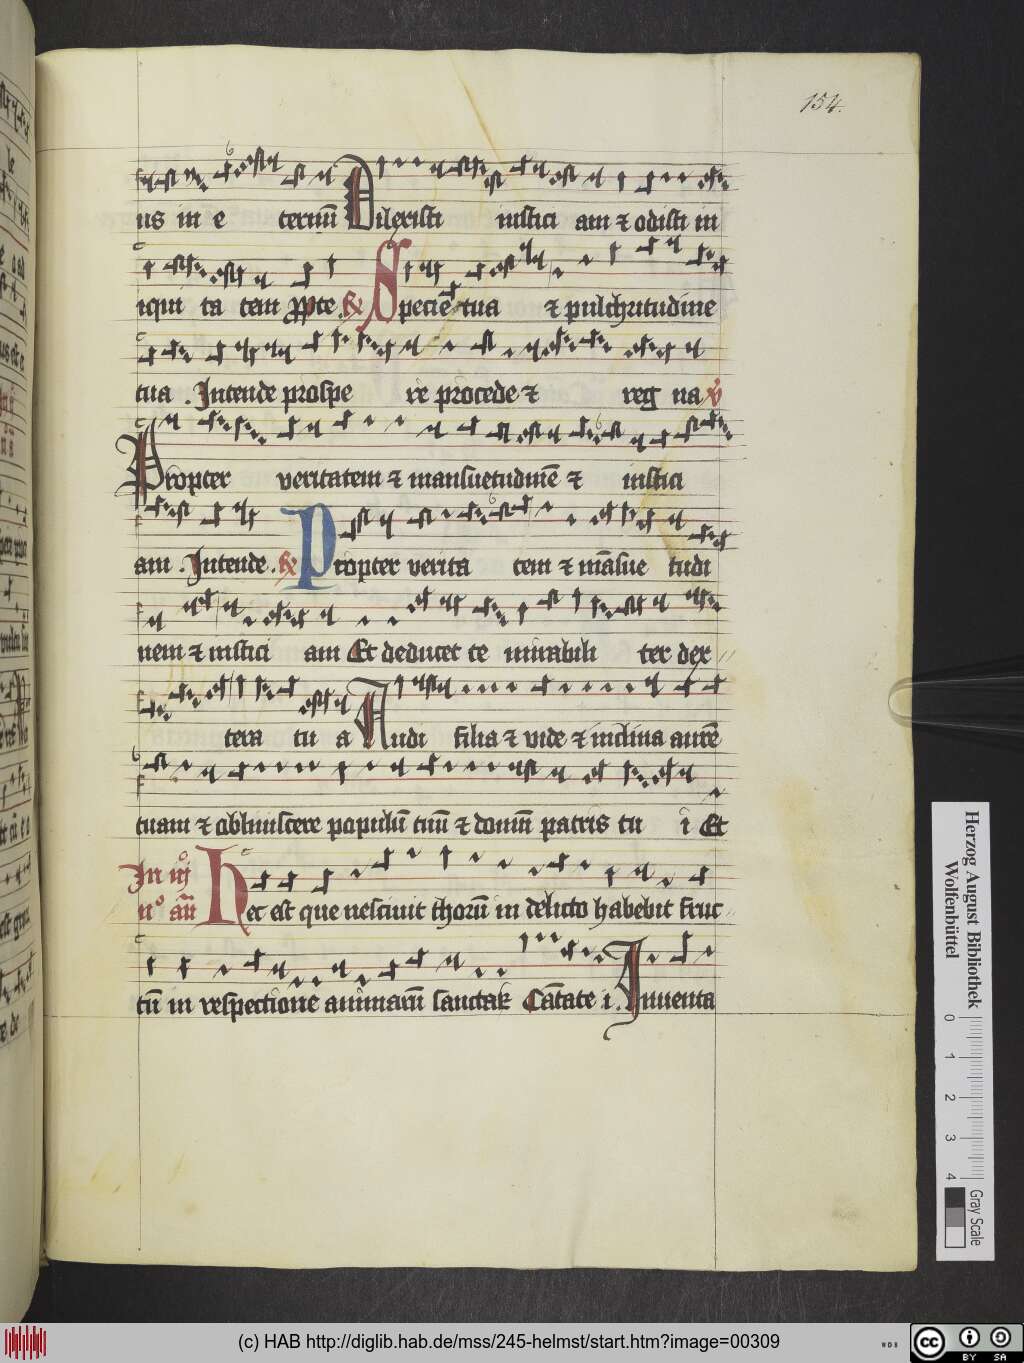 154.
us in e ternū Dilexisti iustici am ⁊ odisti in
iqui ta tem ꝓpte ℟ Speciē tua ⁊ pulchritudine
tua . Intende prospe re procede ⁊ reg na ℣
Propter veritatem ⁊ mansuetudinē ⁊ iustici
am . Intende . ℟ Propter verita tem ⁊ māsue tudi
nem ⁊ iustici am Et deducet te mirabili ter dex
tera tu a Audi filia ⁊ vide ⁊ inclina aurē
tuam ⁊ obliuiscere populū tuū ⁊ domū patris tu i Et
In iijº
nº añ Hec est que nesciuit thorū in delicto habebit fruc
tū in respectione animarū sanctaꝝ Cātate i . Inuenta
Herzog August Bibliothek
Wolfenbüttel
0 1 2 3 4
Gray Scale
(c) HAB http://diglib.hab.de/mss/245-helmst/start.htm?image=00309
WDB
cc BY SA